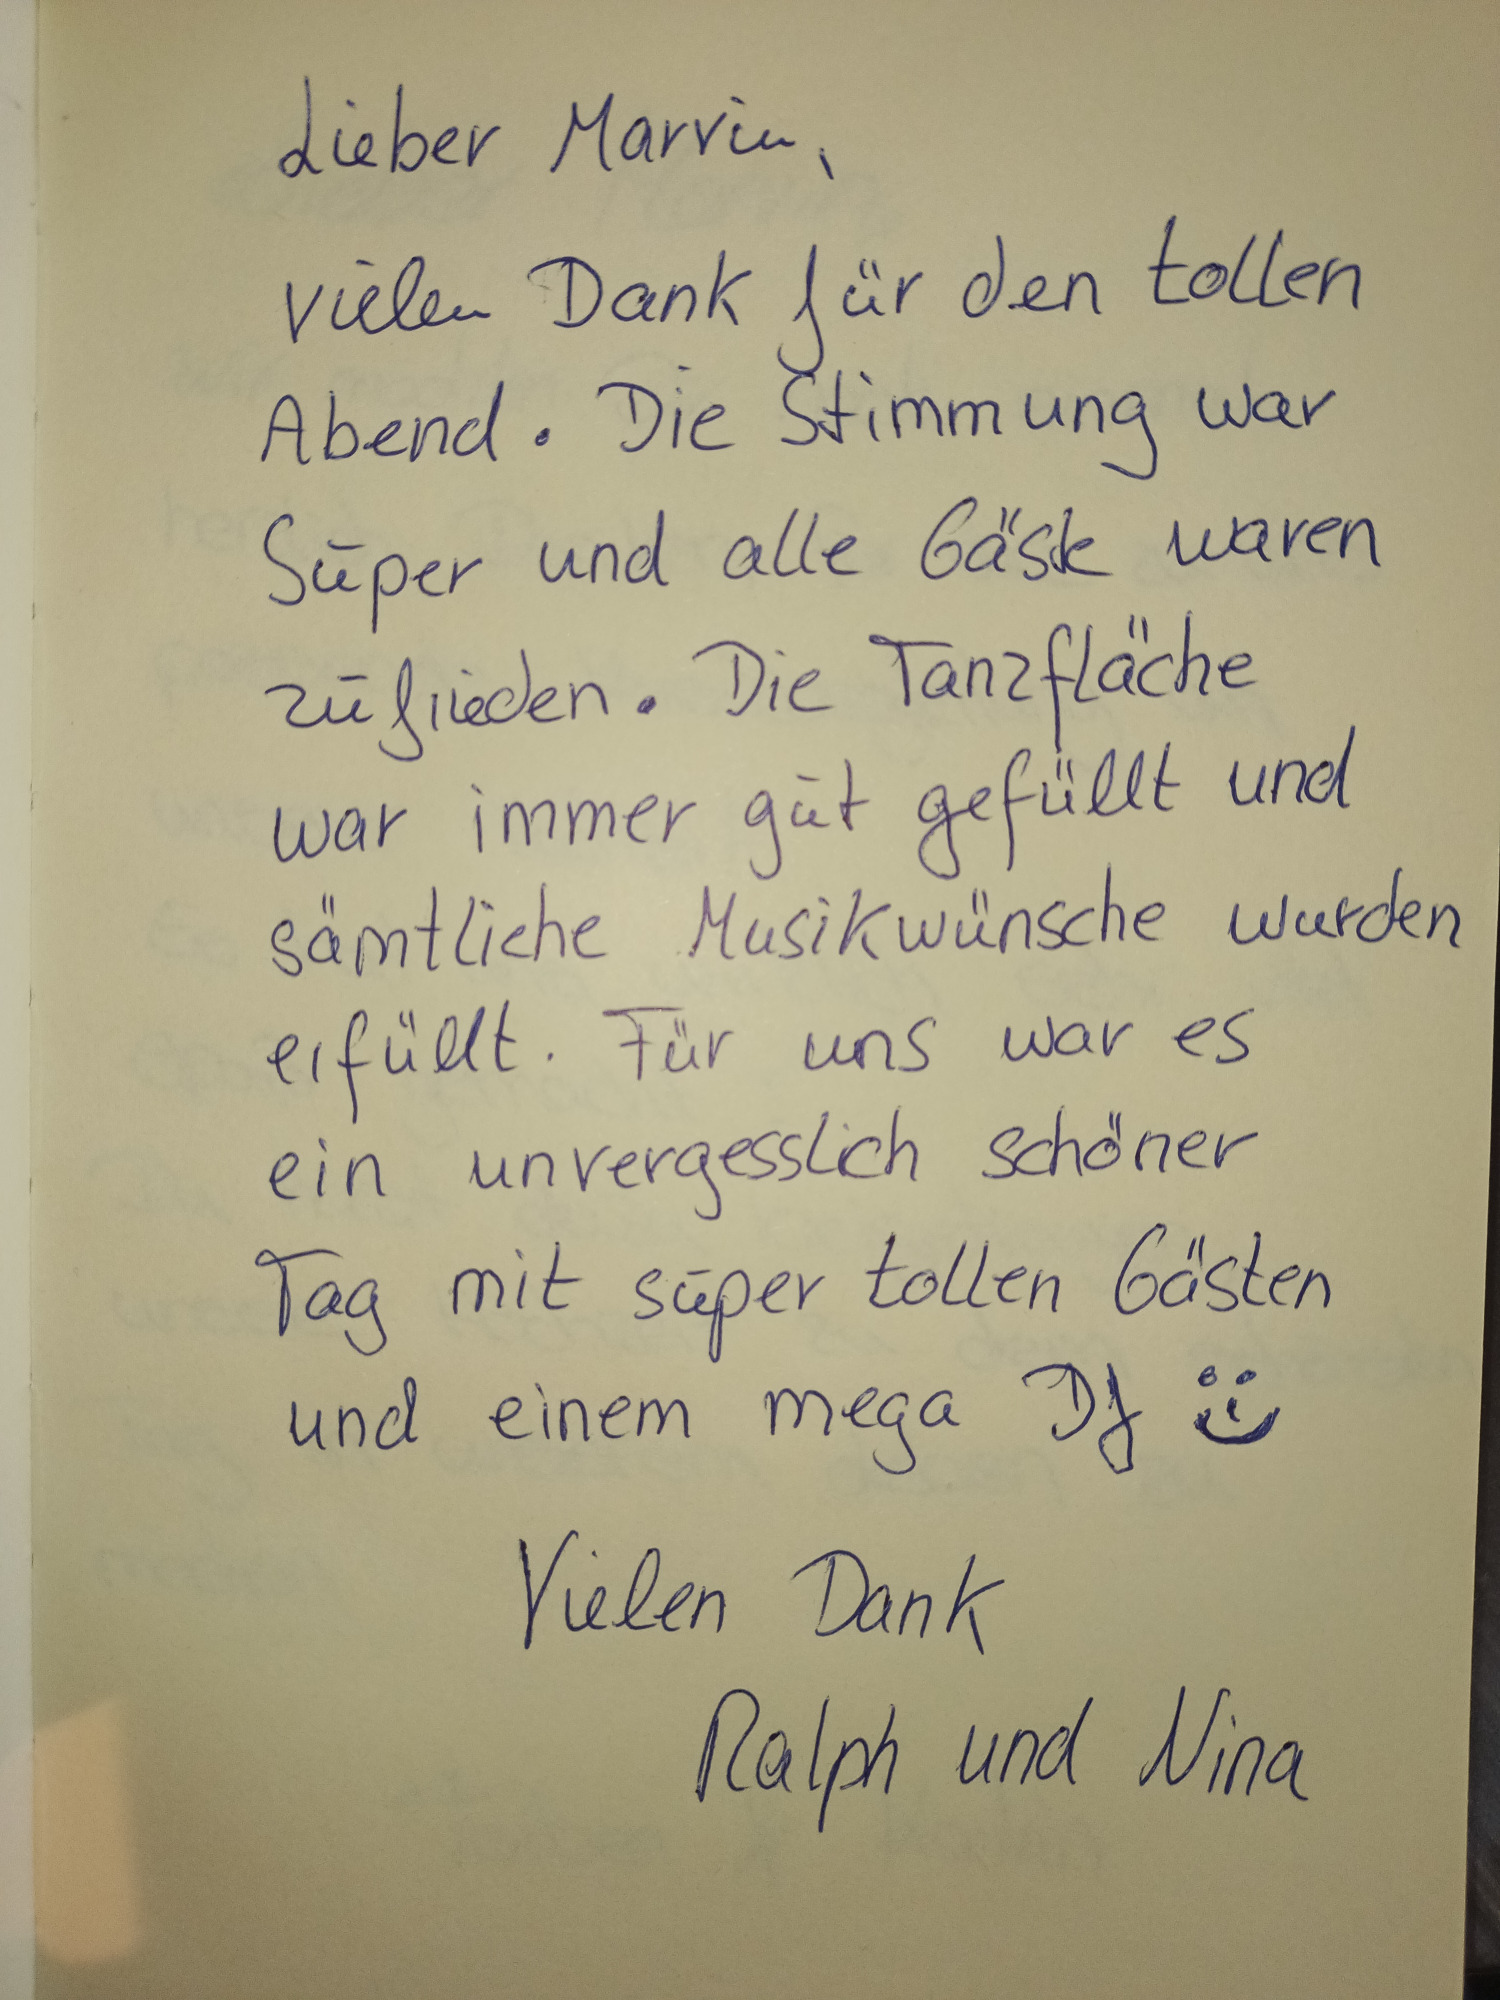 Lieber Marvin,
vielen Dank für den tollen
Abend. Die Stimmung war
Super und alle Gäste waren
zufrieden. Die Tanzfläche
war immer gut gefüllt und
sämtliche Musikwünsche wurden
erfüllt. Für uns war es
ein unvergesslich schöner
Tag mit super tollen Gästen
und einem mega DJ
Vielen Dank
Ralph und Nina